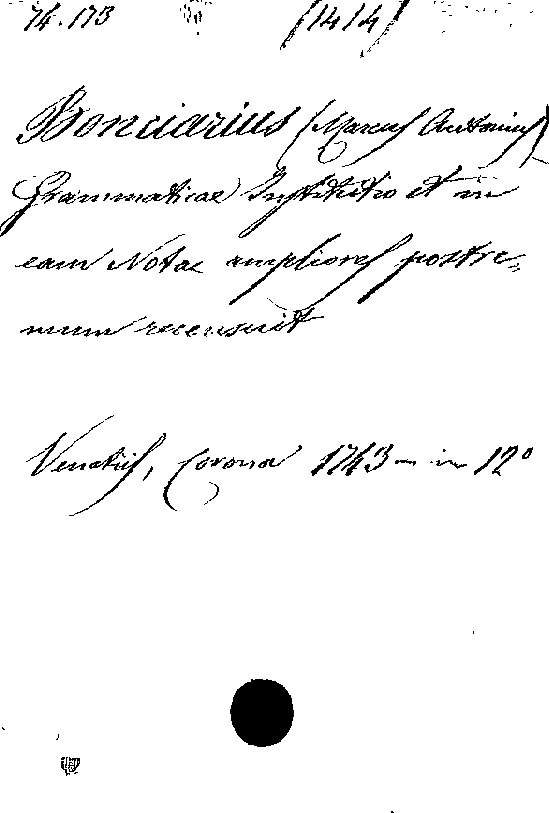 74.173 (1414)
Bonciarius (Marcus Antonius)
Grammaticae Institutio et in
eam Notae ampliores postre=
mum recensuit
Venetiis, Corona 1743 - in 12º